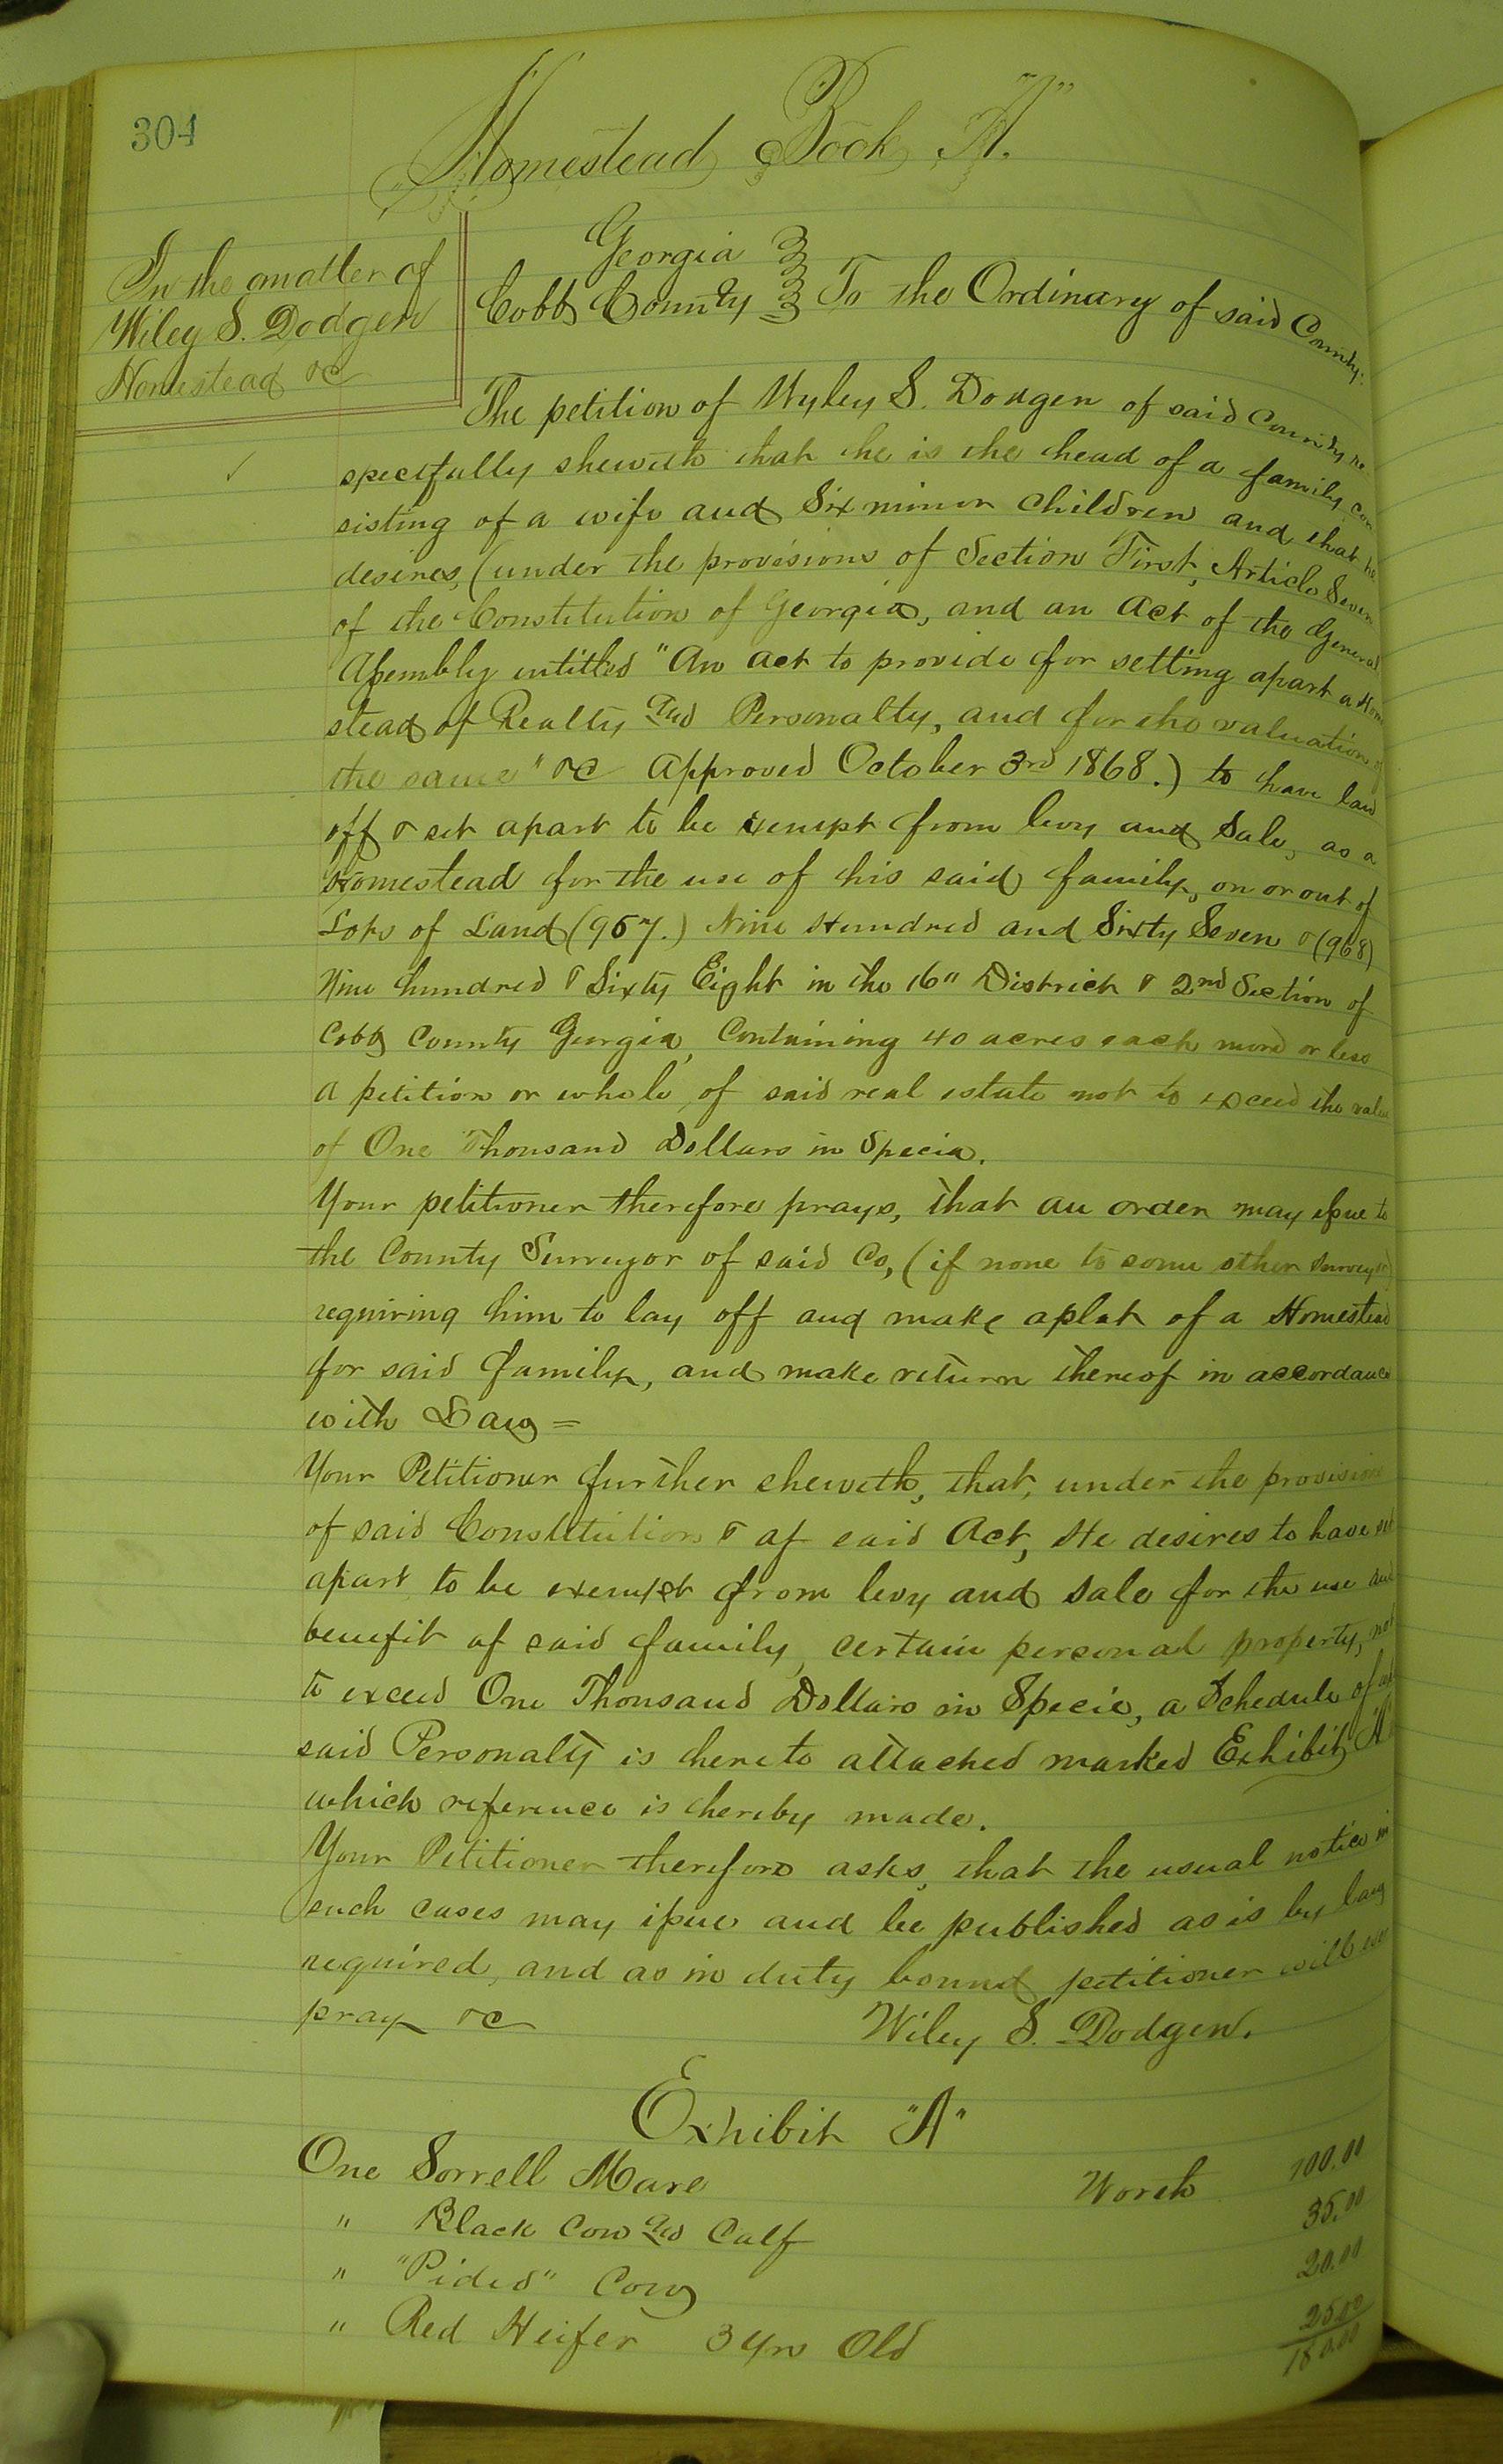 304
Homestead Book "A".
In the matter of
Wiley S. Dodgen
Homestead &c
Georgia
Cobb County } To the Ordinary of said County:
The petition of Wyley S. Dodgen of said County re
spectfully sheweth that he is the head of a family con
sisting of a wife and Six minor Children and that he
desires, (under the provisions of Section First, Article Seven
of the Constitution of Georgia, and an Act of the General
Assembly entitled "An act to provide for setting apart a Home
stead of Realty and Personalty, and for the valuation of
the same" &c Approved October 3rd 1868.) to have laid
off & set apart to be exempt from levy and Sale, as a
Homestead for the use of his said family, on or out of
Lots of Land (967.) Nine Hundred and Sixty Seven & (968)
Nine hundred & Sixty Eight in the 16" District & 2nd Section of
Cobb County Georgia, Containing 40 acres each more or less
a petition or whole, of said real estate not to exceed the value
of One Thousand Dollars in Specia.
Your petitioner therefore prays, that an order may issue to
the County Surveyor of said Co, (if none to some other Surveyor)
requiring him to lay off and make a plat of a Homestead
for said family, and make return thereof in accordance
with Law =
Your Petitioner further sheweth, that, under the provisions
of said Constitution & of said Act, He desires to have set
apart to be exempt from levy and Sale for the use and
benefit of said family, certain personal property, not
to exceed One Thousand Dollars in Specie, a Schedule of
said Personalty is hereto attached marked Exhibit "A"
which reference is hereby made.
Your Petitioner therefore asks, that the usual notice in
such cases may issue and be published as is by law
required, and as in duty bound petitioner will ever
pray &c Wiley S. Dodgen.
Exhibit "A"
One Sorrell Mare Worth 100.00
" Black Cow and Calf 35.00
" "Pided" Cow 20.00
" Red Heifer 3 yrs Old 25.00
180.00